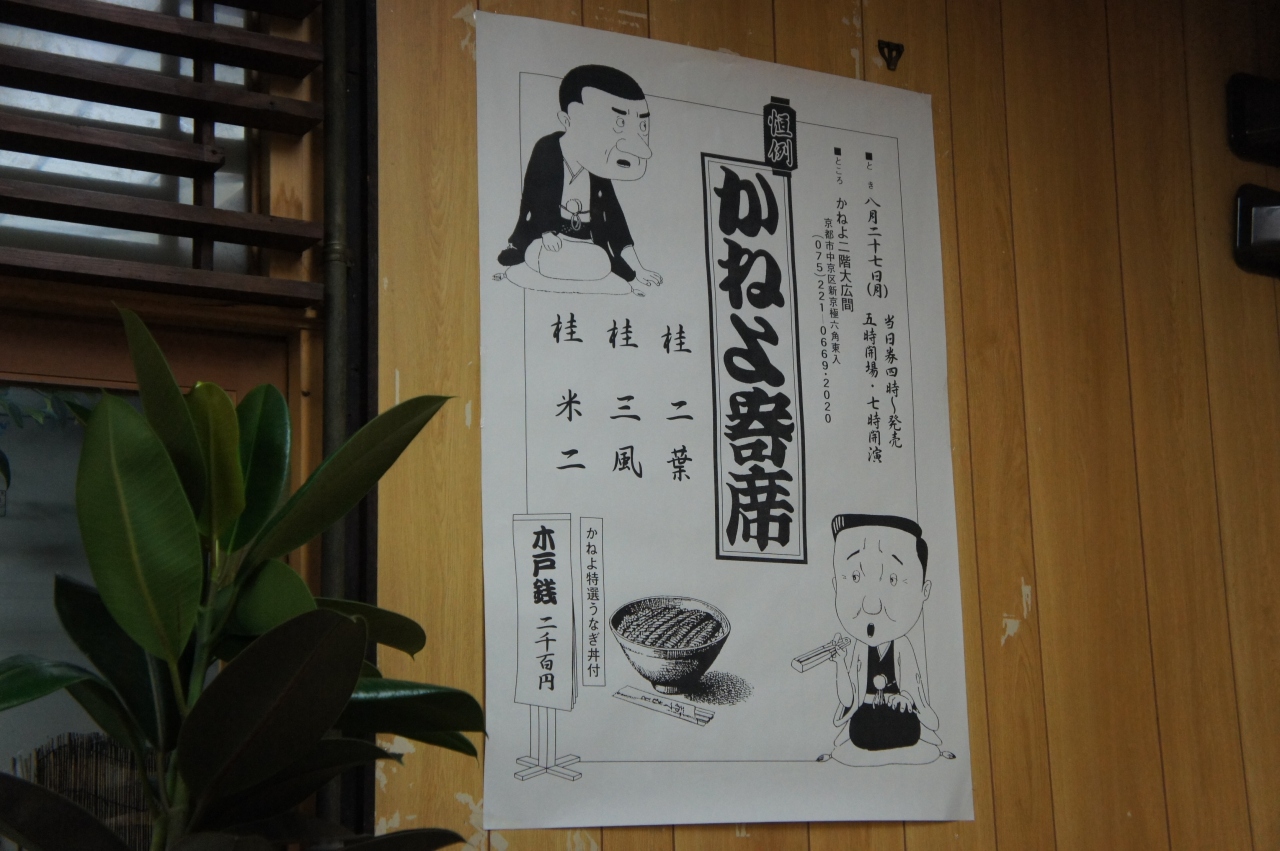 ■とき 八月二十七日(月) 当日券四時〜発売
五時開場・七時開演
■ところ かねよ二階大広間
京都市中京区新京極六角東入
(075)221-0669・2020
恒例
かねよ寄席
桂 二葉
桂 三風
桂 米二
かねよ特選うなぎ丼付
木戸銭 二千百円